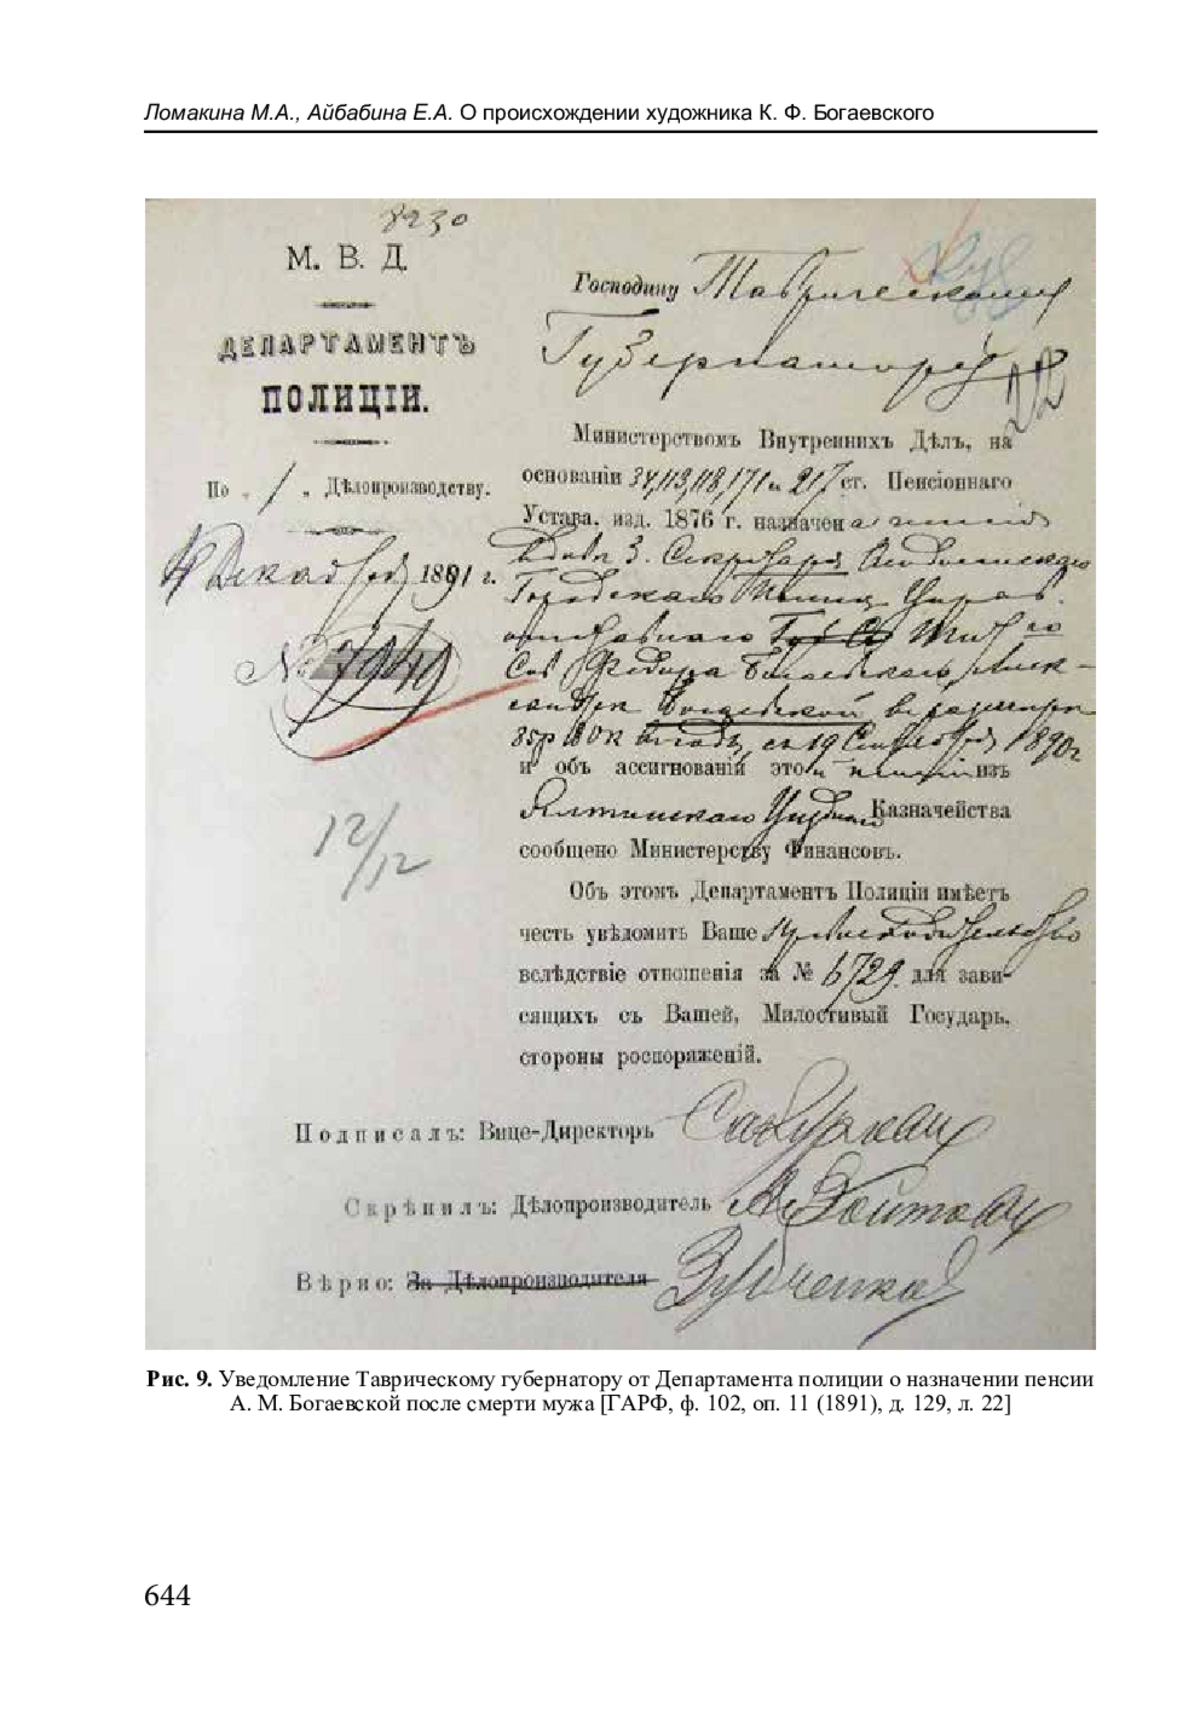 Ломакина М.А., Айбабина Е.А. О происхождении художника К. Ф. Богаевского
8230
М. В. Д.
ДЕПАРТАМЕНТЪ
ПОЛИЦІИ.
По „ 1 „ Дѣлопроизводству.
4 Декабря 1891 г.
№ 7949
12/12
Господину Таврическому
Губернатору
22
Министерствомъ Внутреннихъ Дѣлъ, на
основаніи 34, 113, 118, 171 и 217 ст. Пенсіоннаго
Устава, изд. 1876 г. назначена пенсія
вдовѣ Секретаря Ѳеодосійскаго
Городскаго Полиц. Управ.
Тит.
Сов. Федора Богаевскаго, Алек-
сандрѣ Богаевской въ размѣрѣ
85 р. 80 к. въ годъ, съ 19 Сентября 1890 г.
и объ ассигнованій этой пенсіи изъ
Ялтинскаго Уѣзднаго Казначейства
сообщено Министерству Финансовъ.
Объ этомъ Департаментъ Полиціи имѣетъ
честь увѣдомить Ваше Превосходительство
вслѣдствіе отношенія за № 6729 для зави-
сящихъ съ Вашей, Милостивый Государь,
стороны роспоряженій.
Подписалъ: Вице-Директоръ Сабуровъ
Скрѣпилъ: Дѣлопроизводитель
Вѣрно: За Дѣлопроизводителя
Рис. 9. Уведомление Таврическому губернатору от Департамента полиции о назначении пенсии
А. М. Богаевской после смерти мужа [ГАРФ, ф. 102, оп. 11 (1891), д. 129, л. 22]
644